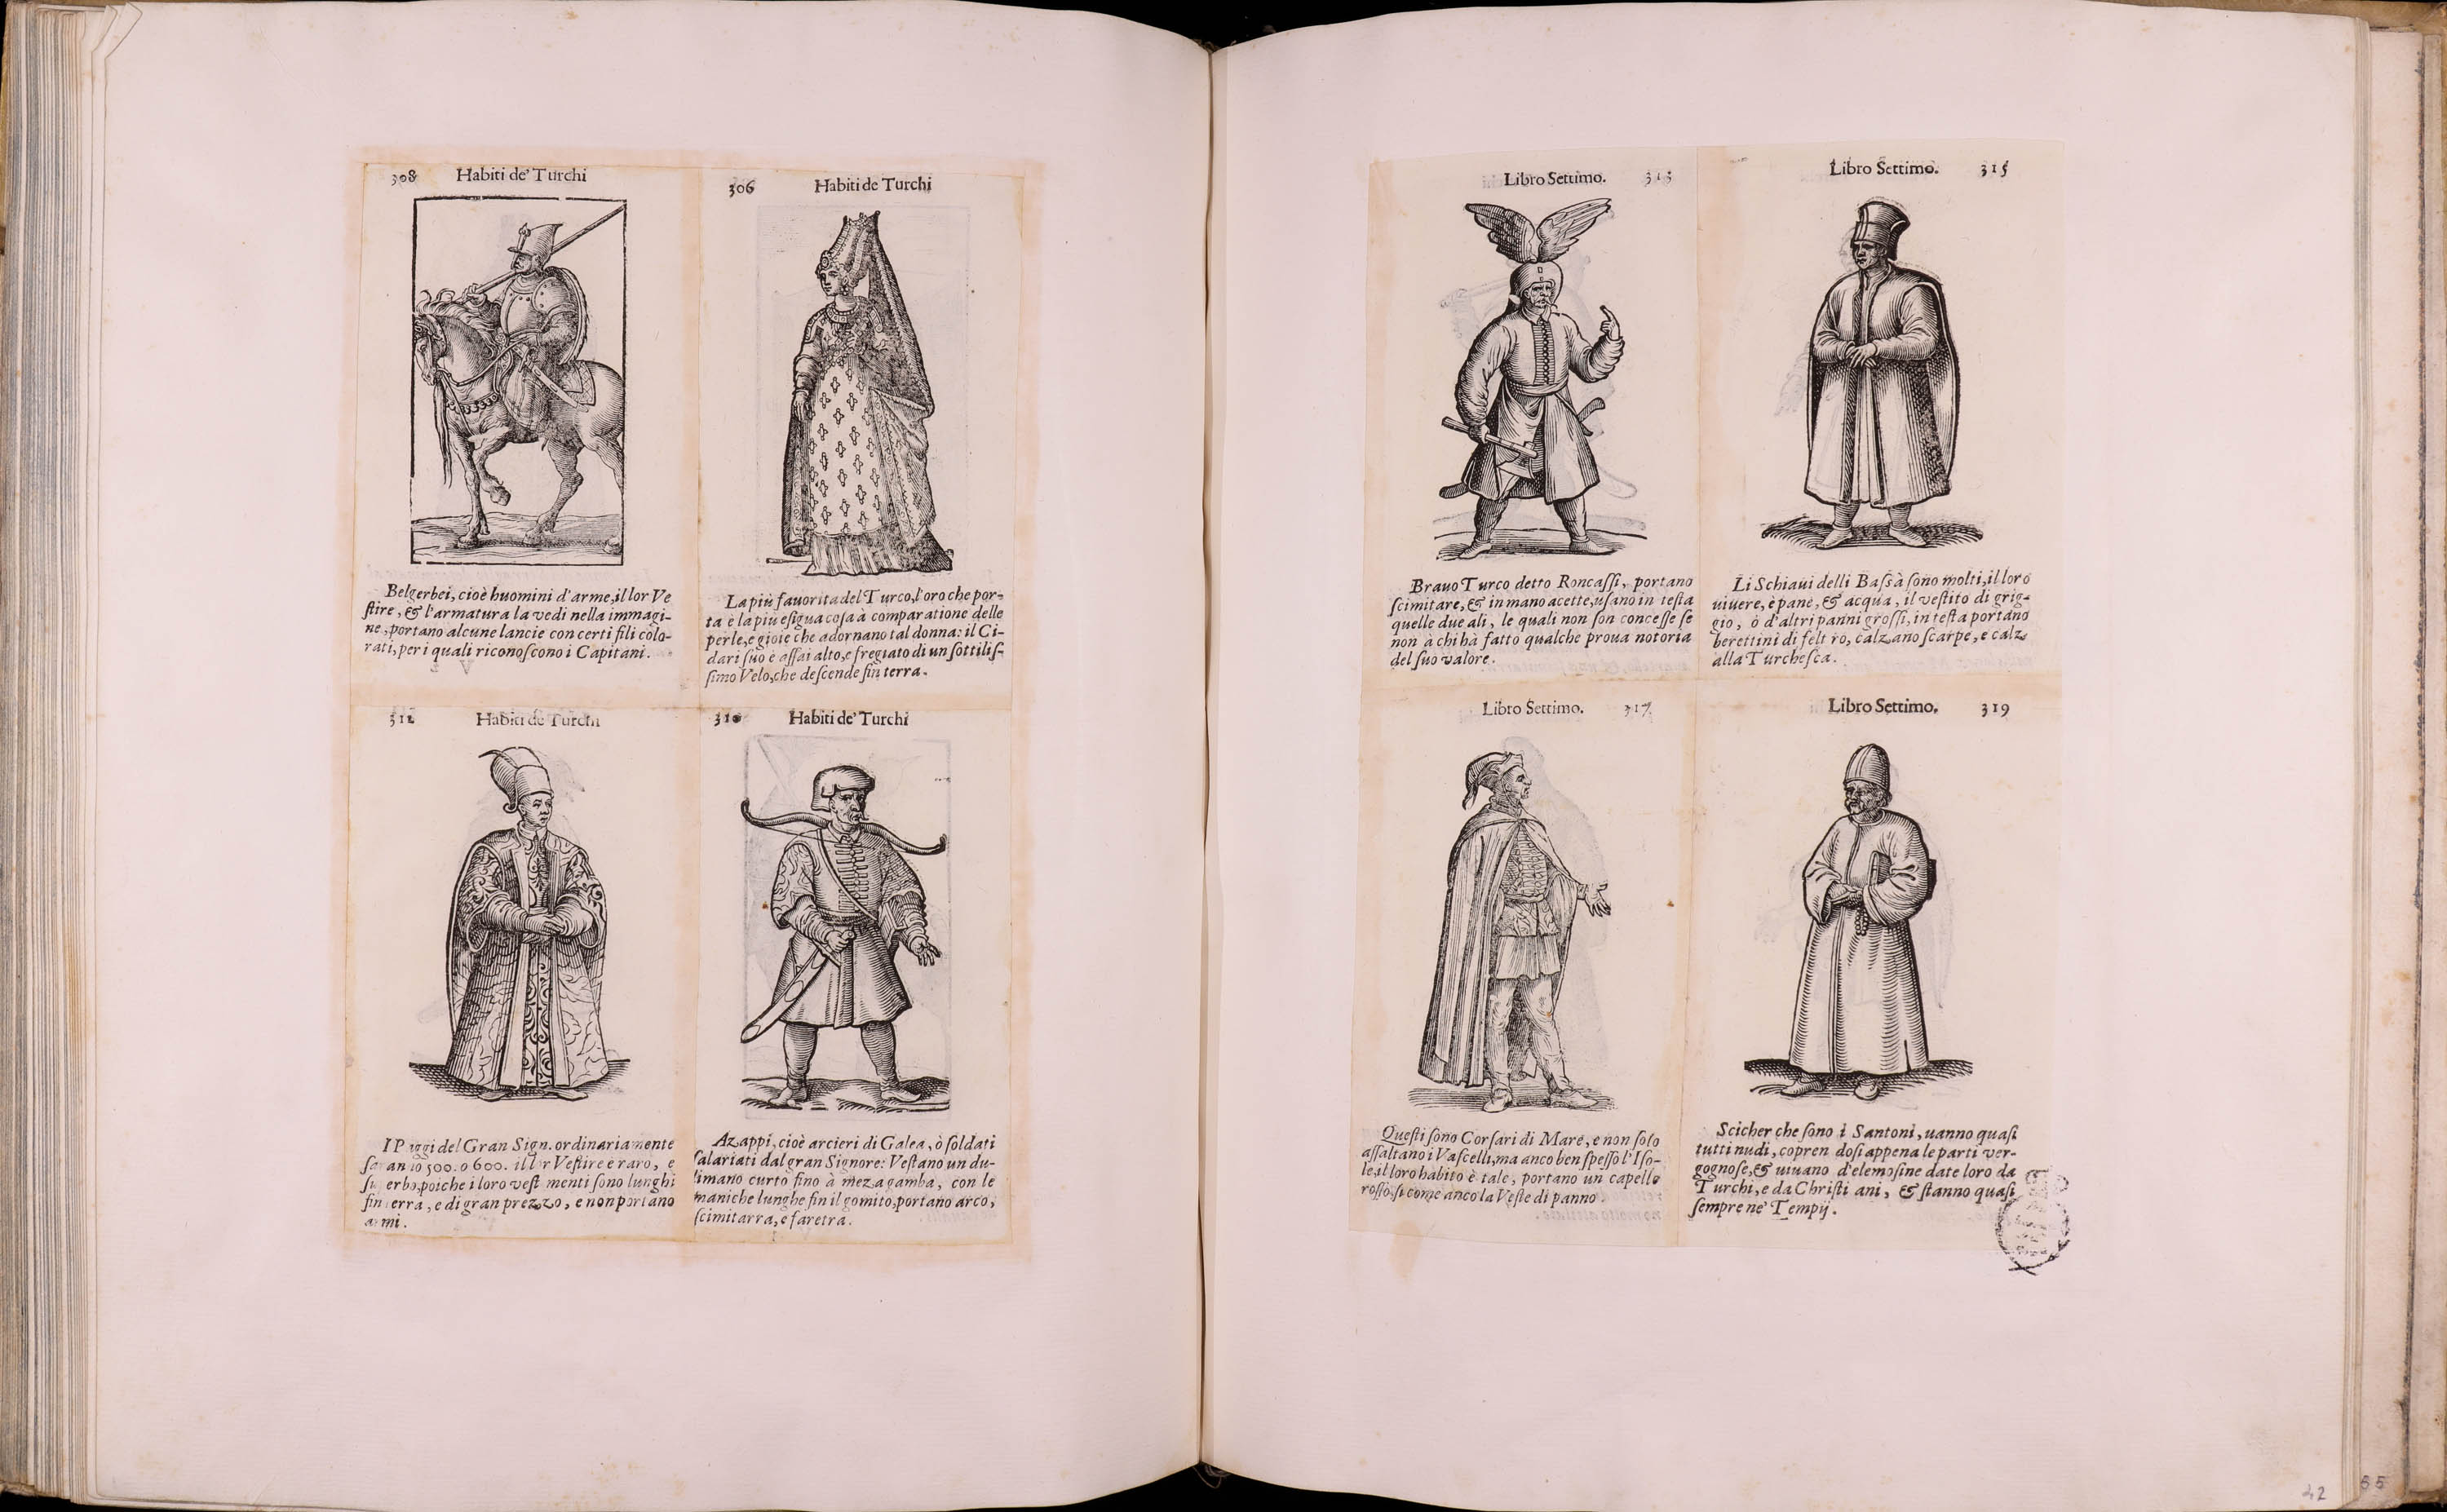 308 Habiti de' Turchi
Belgerbei, cioè huomini d'arme, il lor Ve
ſtire, & l'armatura la vedi nella immagi-
ne, portano alcune lancie con certi fili colo-
rati, per i quali riconoſcono i Capitani.
306 Habiti de Turchi
La più fauorita del Turco, l'oro che por-
ta è la più eſigua coſa à comparatione delle
perle, e gioie che adornano tal donna: il Ci-
dari ſuo è aſſai alto, e fregiato di un ſottiliſ-
ſimo Velo, che deſcende fin terra.
312 Habiti de Turchi
I Paggi del Gran Sign. ordinariamente
500. o 600. il lor Veſtire è raro, e
poiche i loro veſtimenti ſono lunghi
fin terra, e di gran prezzo, e non portano
armi.
310 Habiti de' Turchi
Azappi, cioè arcieri di Galea, ò ſoldati
ſalariati dal gran Signore: Veſtano un du-
limano curto fino à meza gamba, con le
maniche lunghe fin il gomito, portano arco,
ſcimitarra, e faretra.
Libro Settimo. 313
Brauo Turco detto Roncaſſi, portano
ſcimitare, & in mano acette, uſano in teſta
quelle due ali, le quali non ſon conceſſe ſe
non à chi hà fatto qualche proua notoria
del ſuo valore.
Libro Settimo. 315
Li Schiaui delli Baſsà ſono molti, il loro
uiuere, è pane, & acqua, il veſtito di grig-
gio, ò d'altri panni groſſi, in teſta portano
berettini di feltro, calzano ſcarpe, e calze
alla Turcheſca.
Libro Settimo. 317
Queſti ſono Corſari di Mare, e non ſolo
aſſaltano i Vaſcelli, ma anco ben ſpeſſo l'Iſo-
le, il loro habito è tale, portano un capello
roſſo, ſi come anco la Veſte di panno.
Libro Settimo. 319
Scicher che ſono i Santoni, uanno quaſi
tutti nudi, copren doſi appena le parti ver-
gognoſe, & uiuano d'elemoſine date loro da
Turchi, e da Chriſti ani, & ſtanno quaſi
ſempre ne' Tempij.
42
55